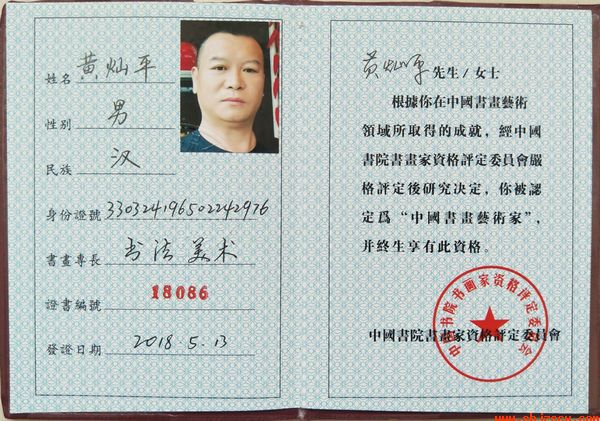 姓名 黄灿平
性别 男
民族 汉
身份證號 330324196502242976
書畫專長 书法 美术
證書編號 18086
發證日期 2018.5.13
黄灿平 先生/女士
根據你在中國書畫藝術
領域所取得的成就，經中國
書院書畫家資格評定委員會嚴
格評定後研究决定，你被認
定爲“中國書畫藝術家”，
并終生享有此資格。
中國書院書畫家資格評定委員會
中国书院书画家资格评定委员会